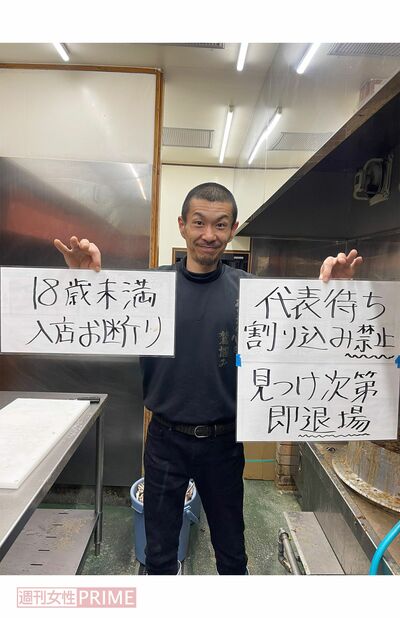 18歳未満
入店お断り
代表待ち
割り込み禁止
見つけ次第
即退場
週刊女性PRIME